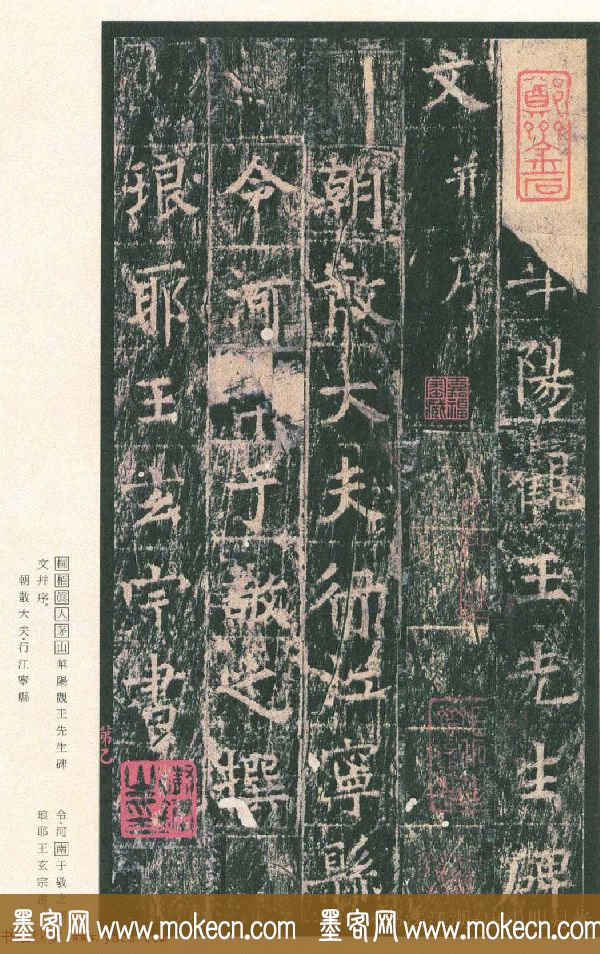 華陽觀王先生碑
文并序
朝散大夫行江寧縣
令河南于敬之撰
琅耶王玄宗書
第乙
桐柏眞人茅山華陽觀王先生碑
文幷序。
朝散大夫·行江寧縣
令·河南于敬之
琅耶王玄宗書
墨客网 www.mokecn.com 墨客网 www.mokecn.com